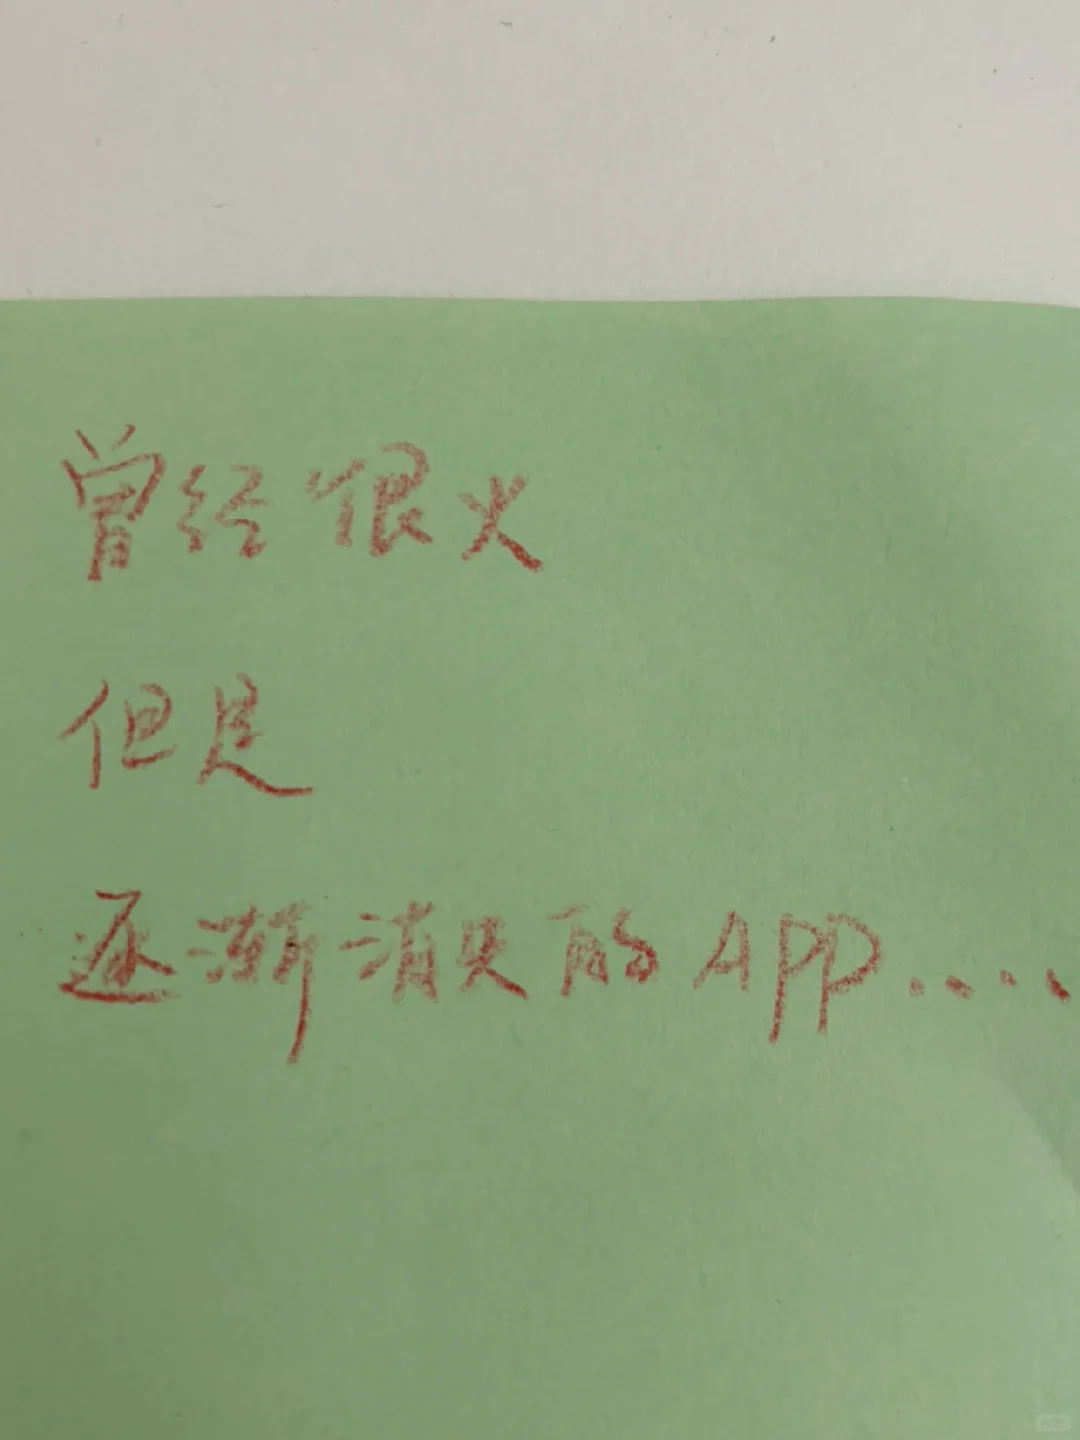 曾经很火
但是
逐渐消失的APP....